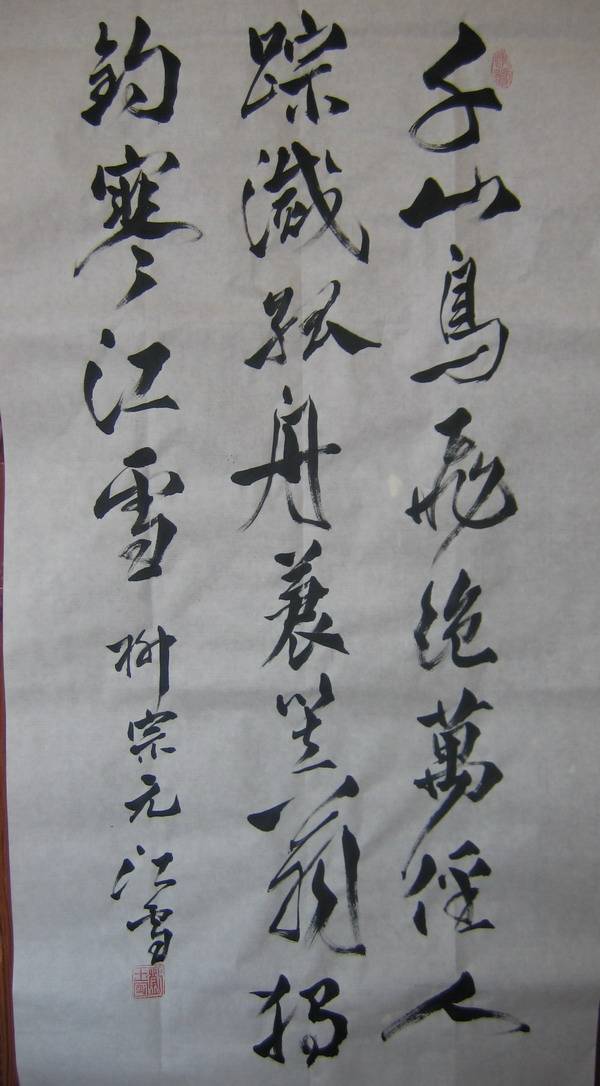 千山鳥飛絶萬徑人
踪滅孤舟蓑笠翁獨
釣寒江雪 柳宗元江雪